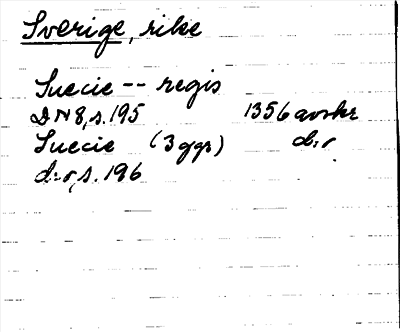 Sverige, rike
Suecie -- regis
DN 8, s. 195 1356 avskr
Suecie (3 ggr) d:o
d:o, s. 196